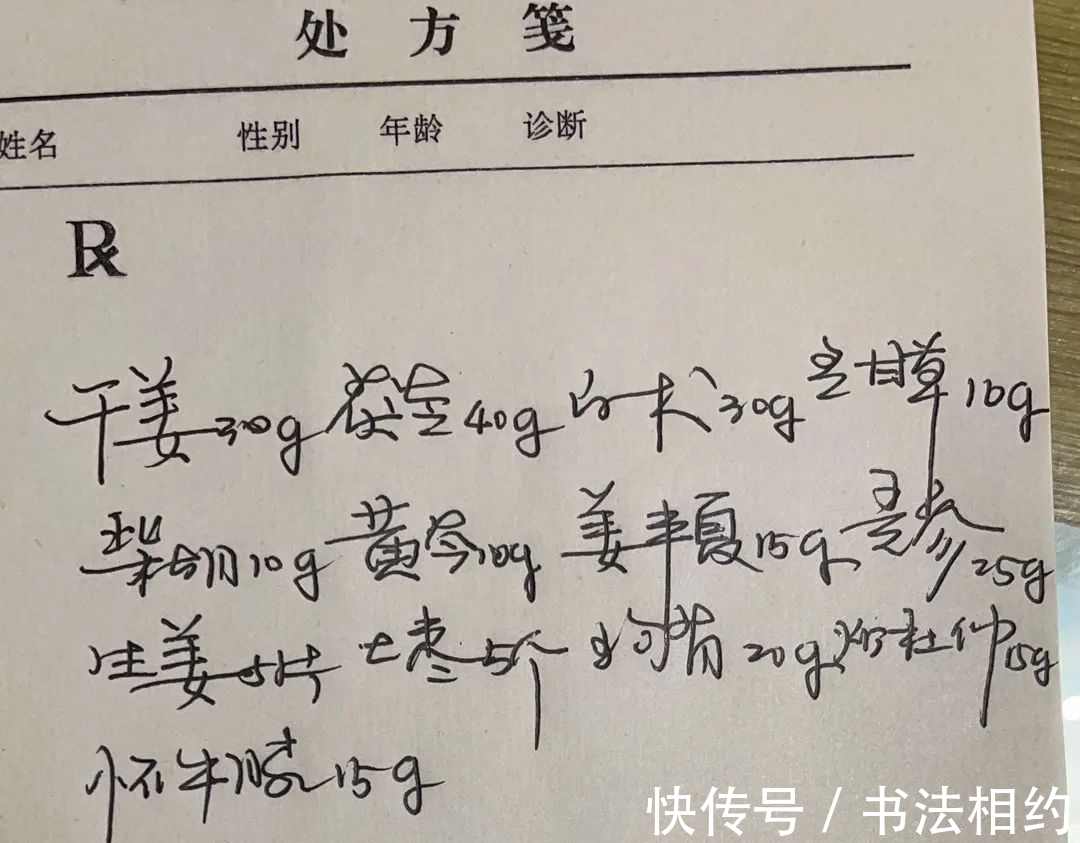 处方笺
姓名 性别 年龄 诊断
Rx
干姜30g 茯苓40g 白术30g 炙甘草10g
柴胡10g 黄芩10g 姜半夏15g 党参25g
生姜5片 大枣5个 狗脊20g 炒杜仲15g
怀牛膝15g
快传号 / 书法相约